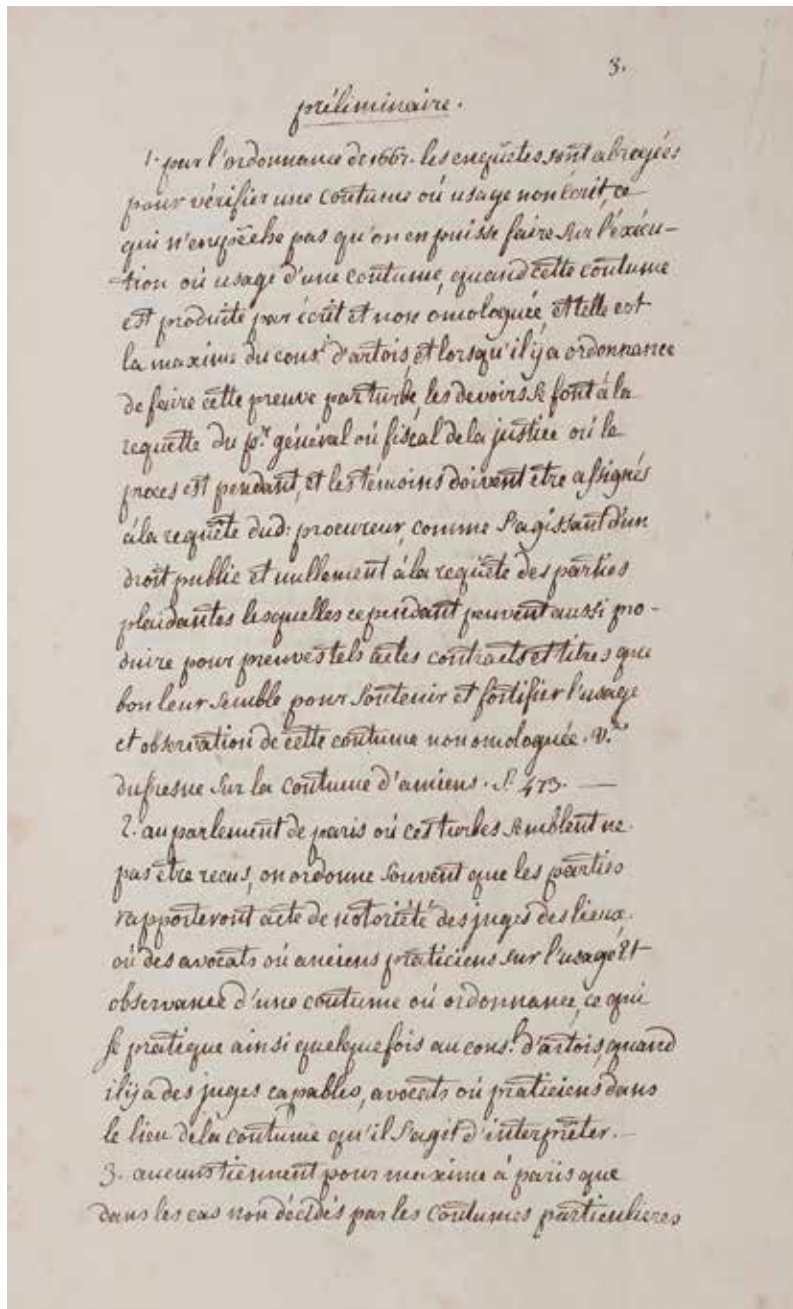 3.
préliminaire.
1. par l'ordonnance de 1667. les enquetes sont abrogées
pour vérifier une coutume où usage non écrit, ce
qui n'empêche pas qu'on en puisse faire sur l'éxécu-
tion où usage d'une coutume, quand cette coutume
est produite par écrit et non omologuée, et telle est
la maxime du cons.l d'artois, et lorsqu'il ij a ordonnance
de faire cette preuve par turbe, les devoirs se font à la
requette du p.r général où fiscal de la justice où le
proces est pendant, et les témoins doivent être assignés
à la requête dud: procureur, comme s'agissant d'un
droit public et nullement à la requête des parties
plaidantes lesquelles cependant peuvent aussi pro-
duire pour preuves tels actes contracts et titres que
bon leur semble pour soutenir et fortifier l'usage
et observation de cette coutume non omologuée. V.
dufresne sur la coutume d'amiens. f. 473. —
2. au parlement de paris où ces turbes semblent ne
pas être recus, on ordonne souvent que les parties
rapporteront acte de notoriété des juges des lieux
où des avocats où anciens praticiens sur l'usage et
observance d'une coutume où ordonnance, ce qui
se pratique ainsi quelque fois au cons.l d'artois, quand
il ij a des juges capables, avocats où praticiens dans
le lieu de la coutume qu'il s'agit d'interprêter. —
3. aucuns tiennent pour maxime à paris que
dans les cas non décidés par les coutumes particulieres